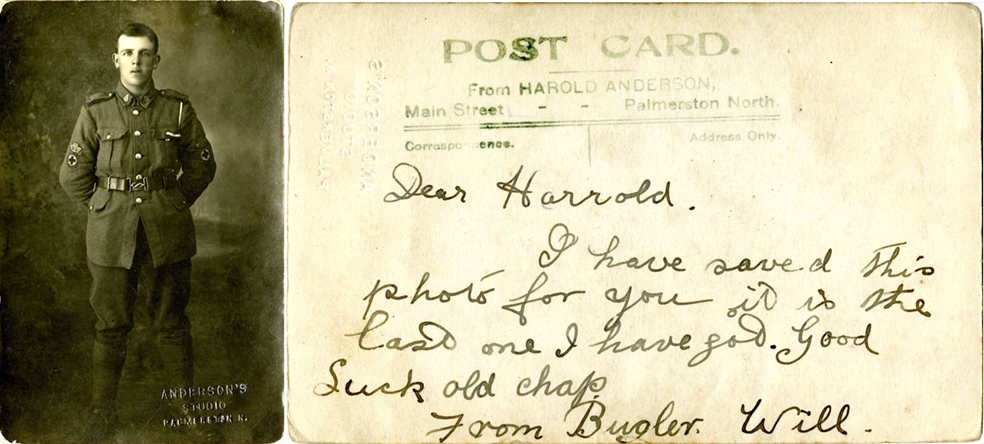 ANDERSON'S
STUDIO
PALMERSTON N.
POST CARD.
From HAROLD ANDERSON,
Main Street - - Palmerston North.
Correspondence.
Address Only.
Dear Harrold.
I have saved this
photo for you it is the
last one I have got. Good
Luck old chap
From Bugler. Will.